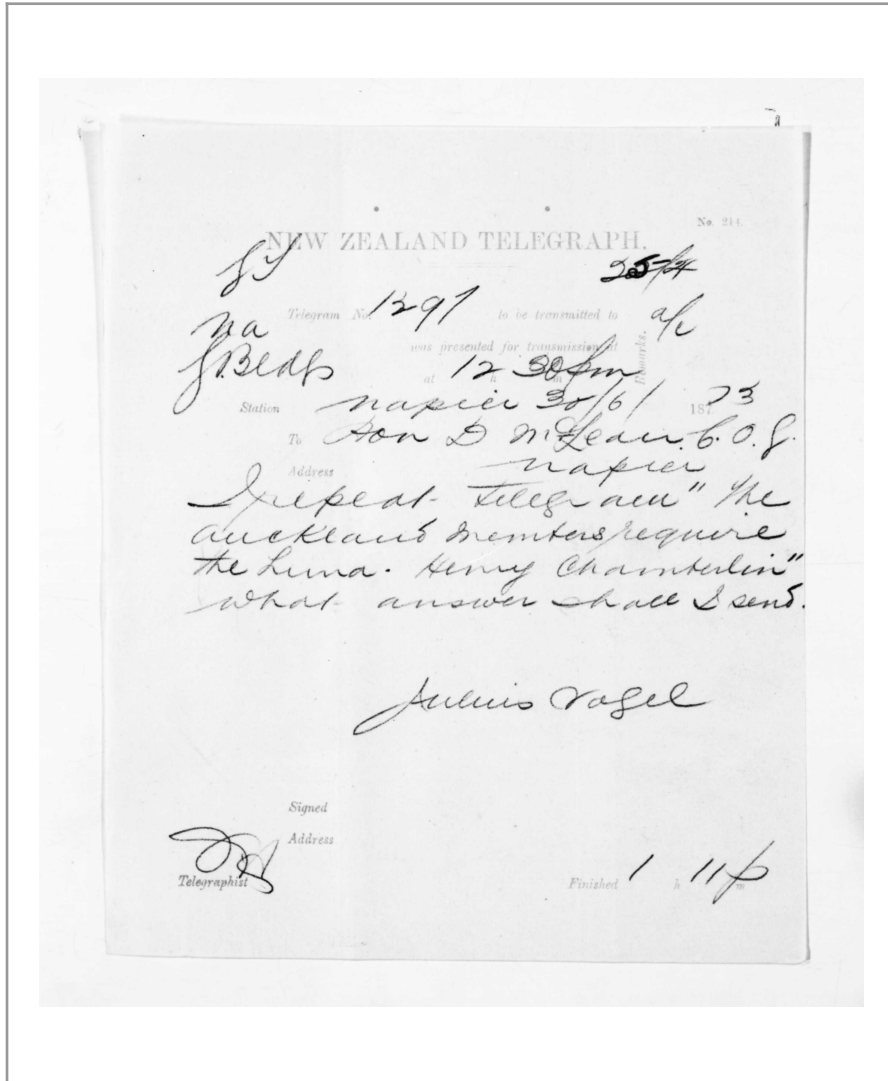 No. 214.
NEW ZEALAND TELEGRAPH.
Telegram No. 1297 to be transmitted to
was presented for transmission at
Remarks. a/c
at 12 h 30 pm
Station Napier 30/6/ 1873
To Hon D McLean. C.O.G.
Address Napier
I repeat Telegram "The
Auckland Members require
the Luna. Henry Chamberlin"
What answer shall I send.
Julius Vogel
Signed
Address
Telegraphist
Finished 1 h 11 p m